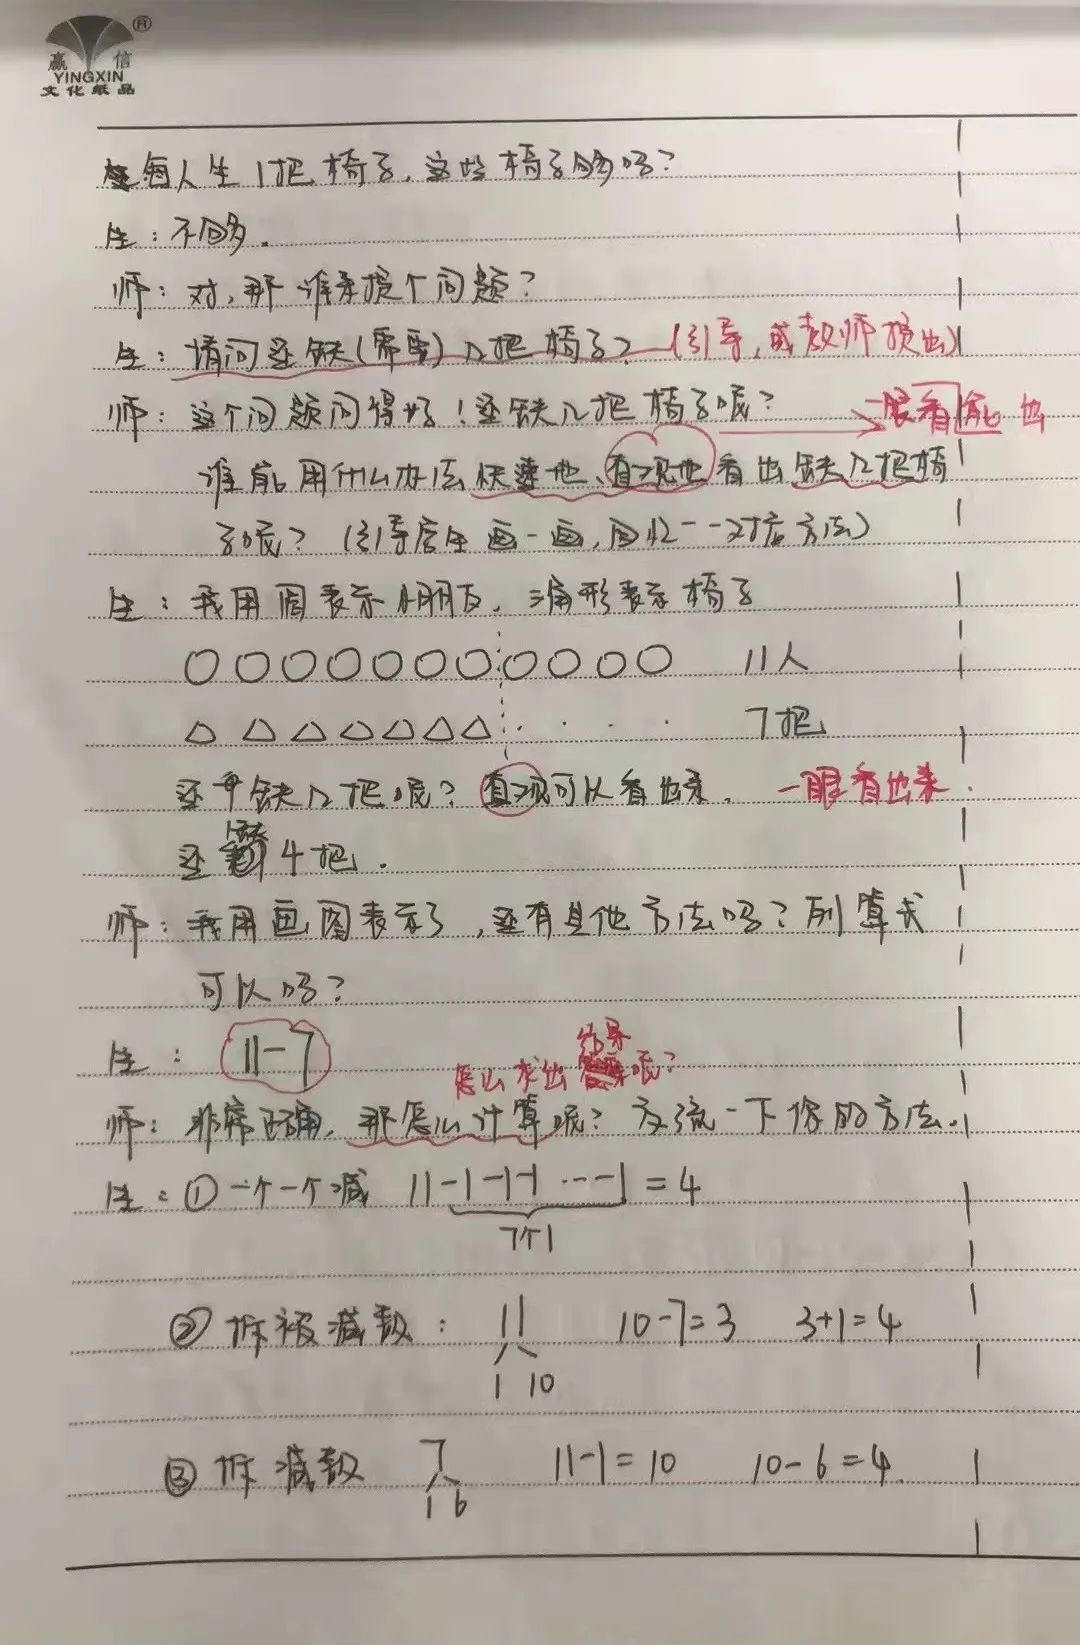 赢信
YINGXIN
文化纸品
每人坐1把椅子,这些椅子够吗?
生:不够。
师:对,那谁来提个问题?
生:请问还缺(需要)几把椅子?(引导,或教师提出)
师:这个问题问得好!还缺几把椅子呢? 一眼看能出
谁能用什么办法快速地、直观地看出缺几把椅
子呢?(引导学生画一画,回忆一一对应方法)
生:我用圆表示小朋友,三角形表示椅子
11人
7把
还缺几把呢?直观可以看出来. 一眼看出来
还 4把.
师:我用画图表示了,还有其他方法吗?列算式
可以吗?
生:11-7
怎么求出结果呢?
师:非常正确,那怎么计算呢?交流一下你的方法.
生:①一个一个减 11-1-1-1…-1=4
7个1
②拆被减数: 11 10-7=3 3+1=4
1 10
③拆减数 7 11-1=10 10-6=4
1 6